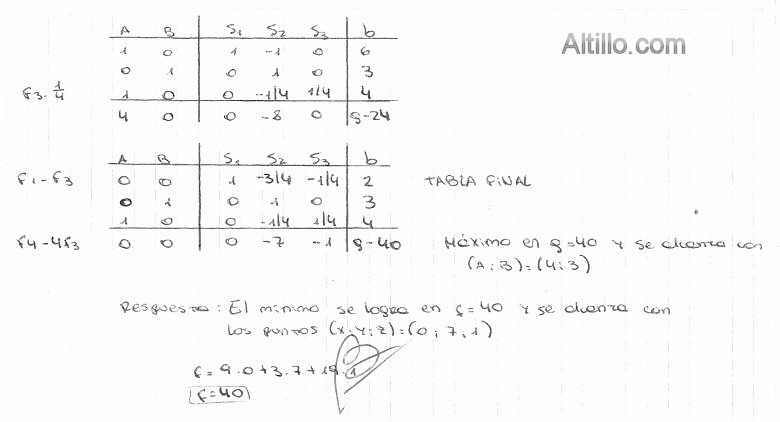 Altillo.com
A B S1 S2 S3 b
1 0 1 -1 0 6
0 1 0 1 0 3
F3. 1/4 1 0 0 -1/4 1/4 4
4 0 0 -8 0 g-24
A B S1 S2 S3 b
F1-F3 0 0 1 -3/4 -1/4 2 TABLA FINAL
0 1 0 1 0 3
1 0 0 -1/4 1/4 4
F4-4F3 0 0 0 -7 -1 g-40 Máximo en g=40 y se alcanza con
(A;B)=(4;3)
Respuesta: El mínimo se logra en f=40 y se alcanza con
los puntos (x;y;z)=(0;7,1)
f=9.0+3.7+19.1
f=40